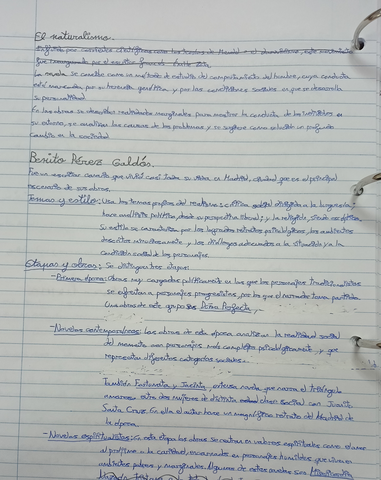 El naturalismo.
que inaugurada por el escritor francés Émile Zola.
La novela se concibe como un método de estudio del comportamiento del hombre, cuya conducta
está marcada por su herencia genética y por las condiciones sociales en que se desarrolla
su personalidad.
En las obras se describen realidades marginales para mostrar la conducta de los individuos en
su entorno, se analizan las causas de los problemas y se sugiere como solución un profundo
cambio en la sociedad.
Benito Pérez Galdós.
Fue un escritor canario que vivió casi toda su vida en Madrid, ciudad que es el principal
escenario de sus obras.
Temas y estilo: Usa los temas propios del realismo: crítica social dirigida a la burguesía;
hace análisis política, desde su perspectiva liberal; y la religiosa, siendo
Su estilo se caracteriza por los logrados retratos psicológicos, los ambientes
descritos minuciosamente y los diálogos adecuados a la situación y a la
condición social de los personajes.
Etapas y obras: Se distinguen tres etapas:
- Primera época: Obras muy cargadas políticamente en las que los personajes
se enfrentan a personajes progresistas, por los que el narrador toma partido.
Una obra de este grupo es Doña Perfecta.
- Novelas contemporáneas: Las obras de esta época analizan la realidad social
del momento con personajes más complejos psicológicamente, y que
representan diferentes categorías sociales.
También Fortunata y Jacinta, extensa novela que narra el triángulo
amoroso entre dos mujeres de distinta clase social con Juanito
Santa Cruz. En ella el autor hace un magnífico retrato del Madrid de
la época.
- Novelas espirituales: En esta etapa las obras se centran en valores espirituales como el amor
al prójimo o la caridad, encarnados en personajes humildes que viven en
ambientes pobres y marginales. Algunas de estas novelas son Misericordia